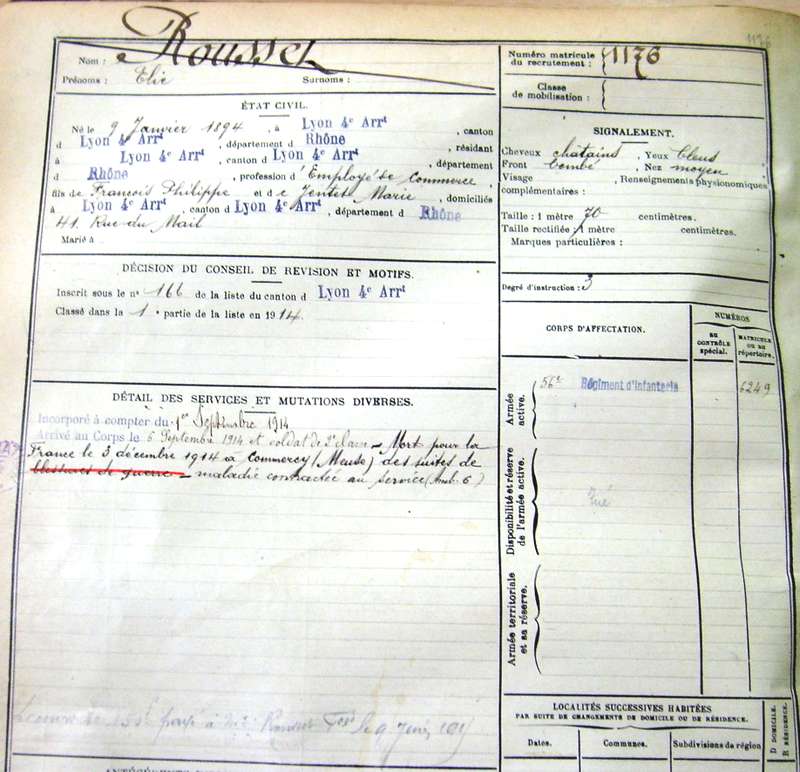 1176
Nom : Rousset
Prénoms : Elie Surnoms :
Numéro matricule du recrutement : 1176
Classe de mobilisation :
ÉTAT CIVIL.
Né le 9 Janvier 1894, à Lyon 4e Arrt, canton
d Lyon 4e Arrt, département d Rhône, résidant
à Lyon 4e Arrt, canton d Lyon 4e Arrt, département
d Rhône, profession d'Employé de Commerce
fils de François Philippe et de Marie, domiciliés
à Lyon 4e Arrt, canton d Lyon 4e Arrt, département d Rhône
41. Rue du Mail
Marié à
SIGNALEMENT.
Cheveux chatains, Yeux bleus
Front bombé, Nez moyen
Visage , Renseignements physionomiques
complémentaires :
Taille : 1 mètre 70 centimètres.
Taille rectifiée : 1 mètre centimètres.
Marques particulières :
Degré d'instruction : 3
DÉCISION DU CONSEIL DE REVISION ET MOTIFS.
Inscrit sous le n° 166 de la liste du canton d Lyon 4e Arrt
Classé dans la 1e partie de la liste en 1914.
DÉTAIL DES SERVICES ET MUTATIONS DIVERSES.
Incorporé à compter du 1er Septembre 1914
Arrivé au Corps le 6 Septembre 1914 et soldat de 2e classe – Mort pour la
France le 3 décembre 1914 à Commercy (Meuse) des suites de
blessures de guerre – maladie contractée au service (Amb. 6)
payé à Rousset le 9 1917
CORPS D'AFFECTATION.
NUMÉROS
au CONTRÔLE spécial.
MATRICULE ou au répertoire.
Armée active.
56e Régiment d'Infanterie 6249
Disponibilité et réserve de l'armée active.
Tué
Armée territoriale et sa réserve.
LOCALITÉS SUCCESSIVES HABITÉES
PAR SUITE DE CHANGEMENTS DE DOMICILE OU DE RÉSIDENCE.
Dates. Communes. Subdivisions de région
D DOMICILE.
R RÉSIDENCE.